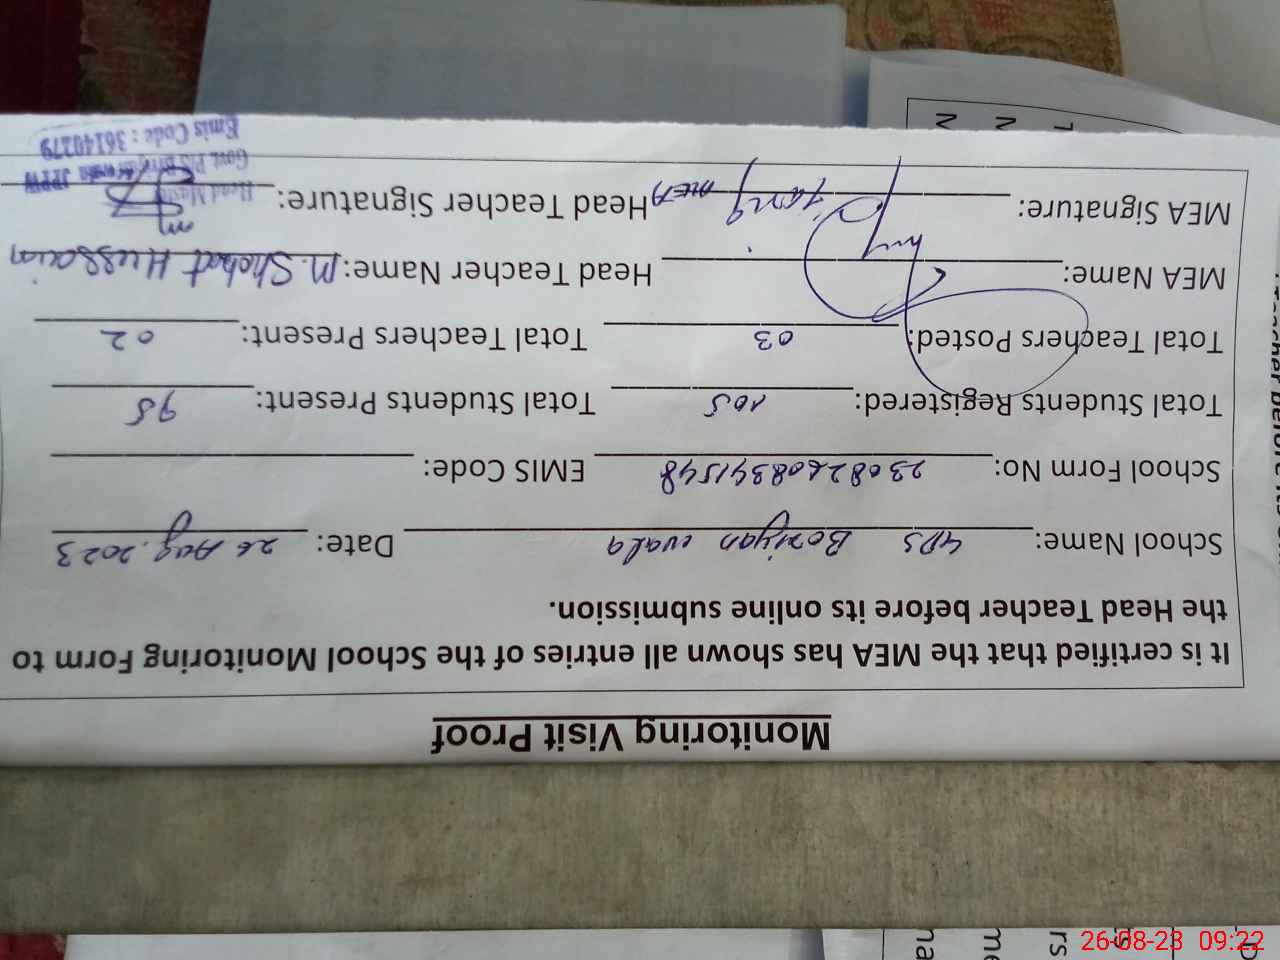 Monitoring Visit Proof
It is certified that the MEA has shown all entries of the School Monitoring Form to
the Head Teacher before its online submission.
School Name: GPS Boriyan wala Date: 26 Aug. 2023
School Form No: 230826083941548 EMIS Code:
Total Students Registered: 105 Total Students Present: 95
Total Teachers Posted: 03 Total Teachers Present: 02
MEA Name: Head Teacher Name: M. Shokat Hussain
MEA Signature: MEA Head Teacher Signature:
Head
Govt. P/S JPPW
Emis Code : 36140279
26-08-23 09:22